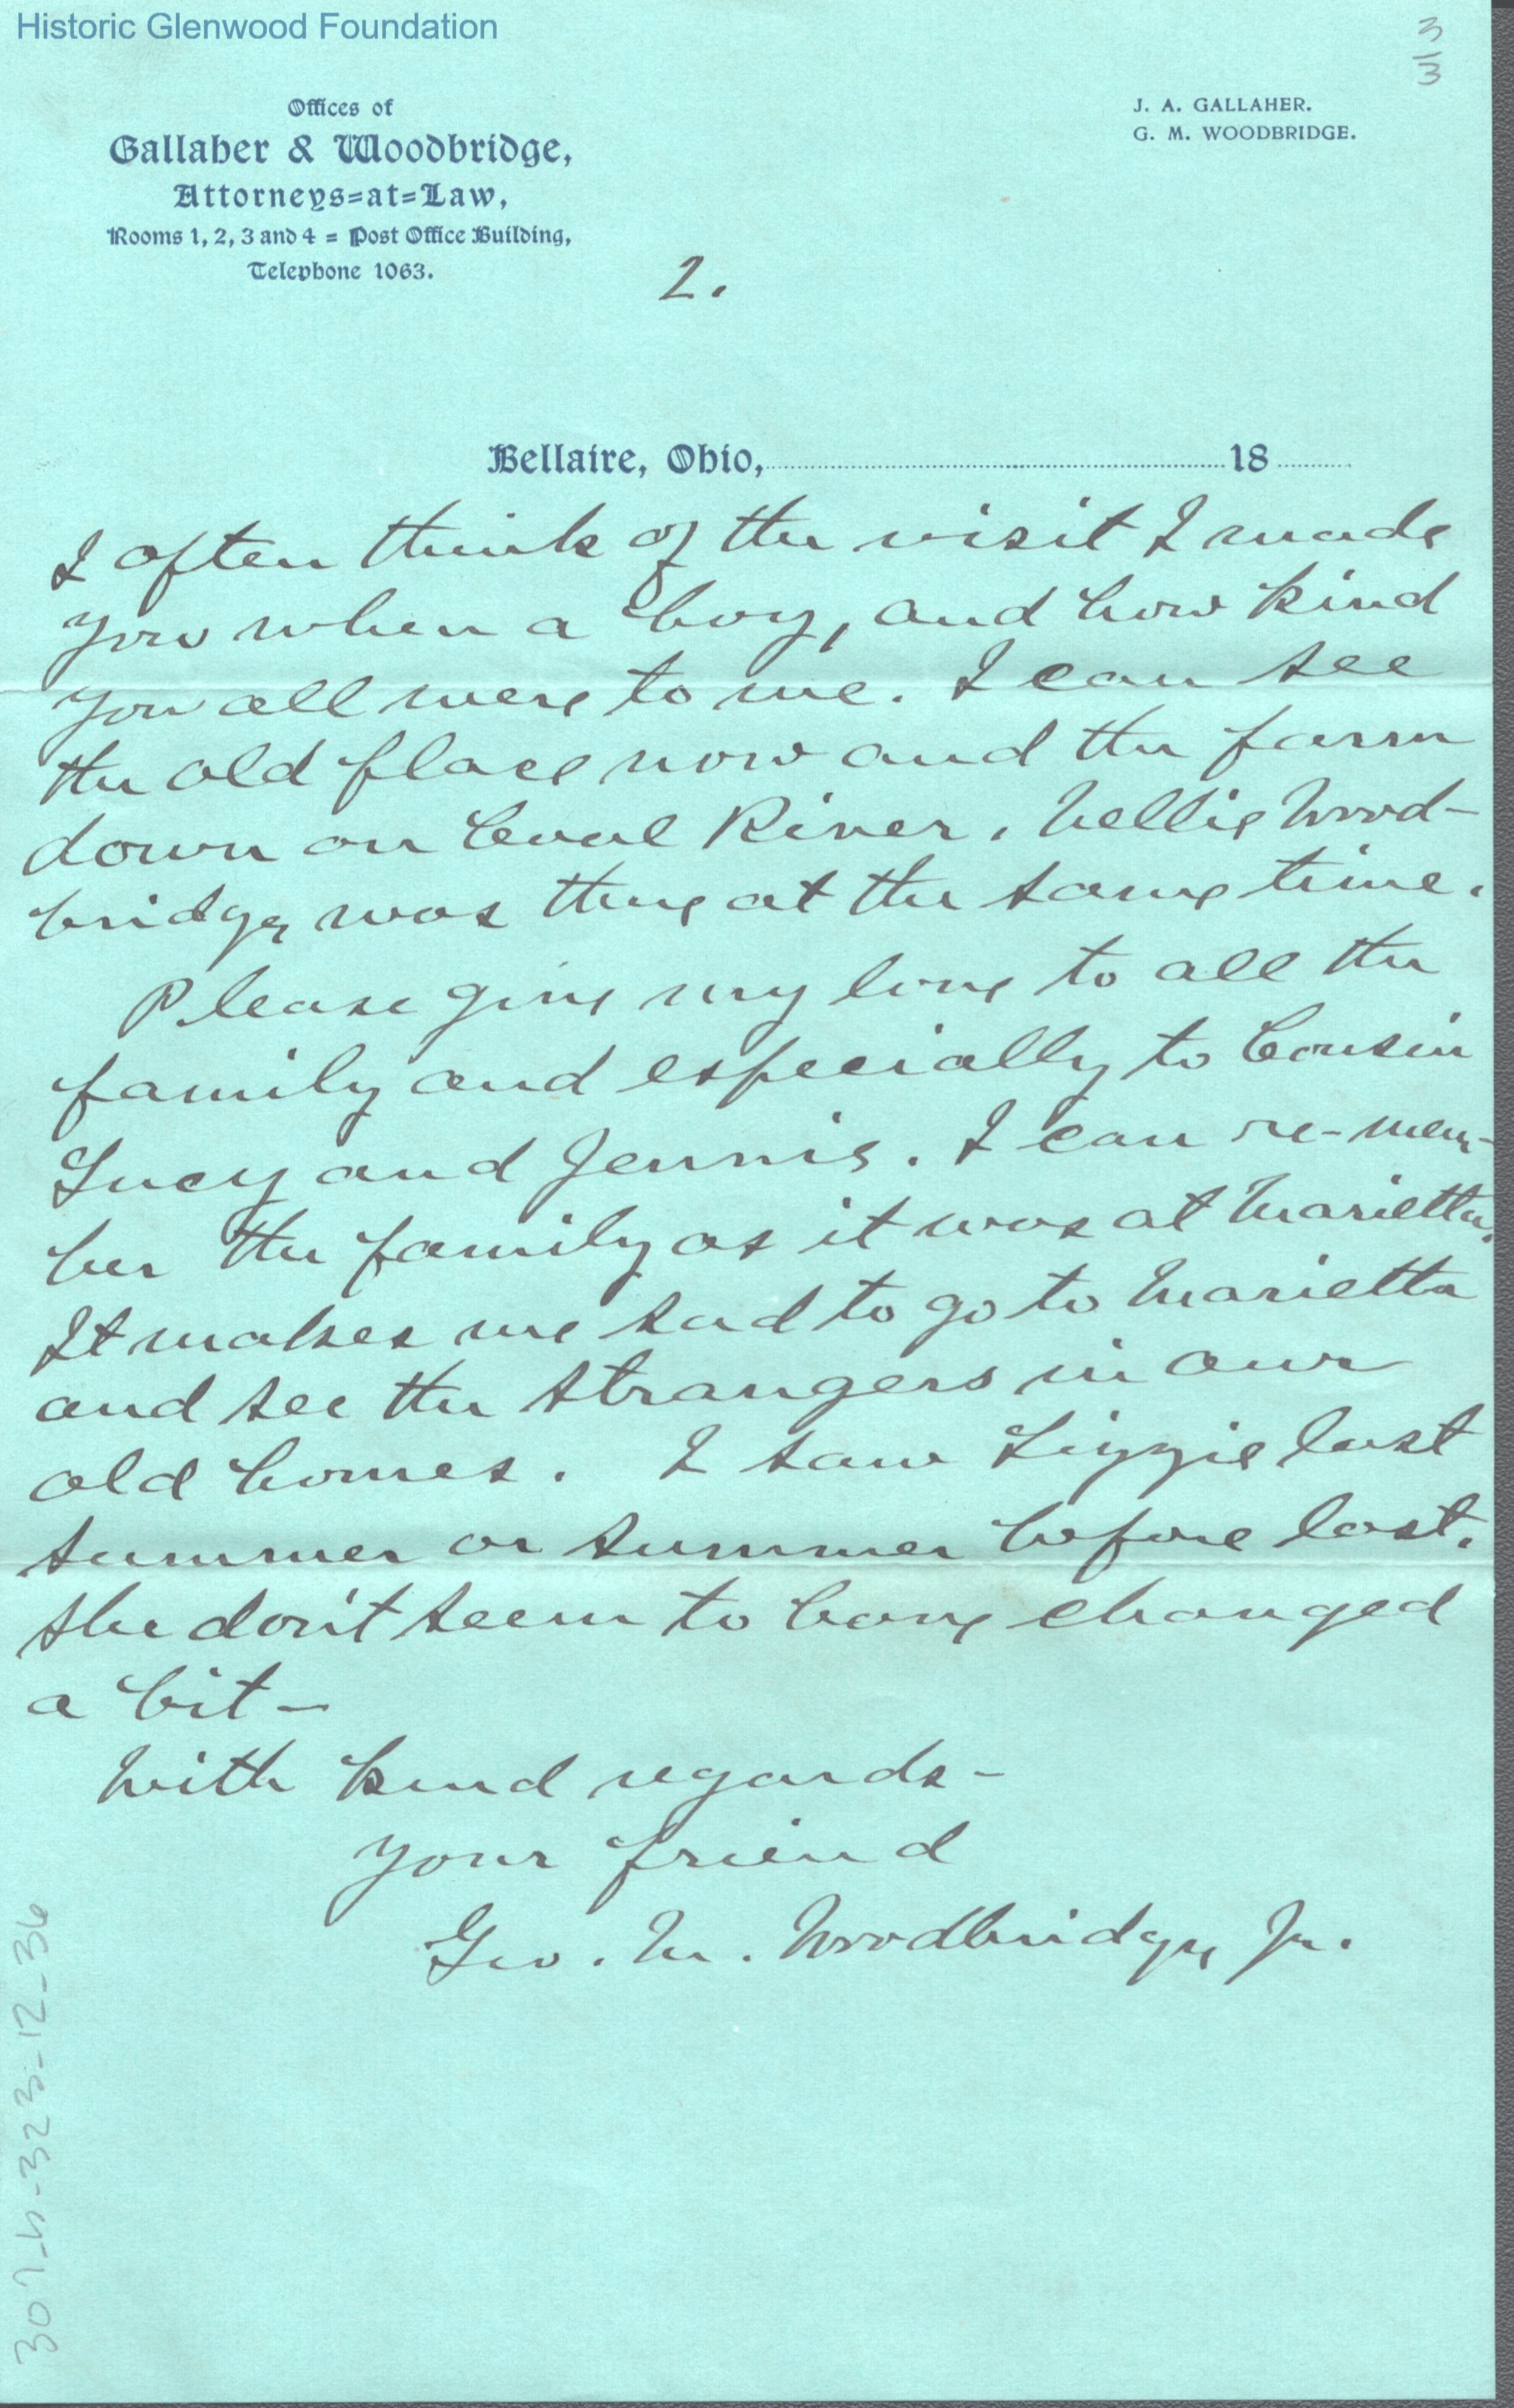 Historic Glenwood Foundation
3/3
Offices of
Gallaher & Woodbridge,
Attorneys=at=Law,
Rooms 1, 2, 3 and 4 = Post Office Building,
Telephone 1063.
J. A. GALLAHER.
G. M. WOODBRIDGE.
2.
Bellaire, Ohio, 18
I often think of the visit I made
you when a boy, and how kind
you all were to me. I can see
the old place now and the farm
down on Coal River. Nellie Wood-
bridge was there at the same time.
Please give my love to all the
family and especially to Cousin
Lucy and Jennie. I can re-mem-
ber the family as it was at Marietta.
It makes me sad to go to Marietta
and see the strangers in our
old homes. I saw Lizzie last
summer or summer before last.
She don't seem to have changed
a bit—
With kind regards—
Your friend
Geo. M. Woodbridge, Jr.
307-h-323-12-36